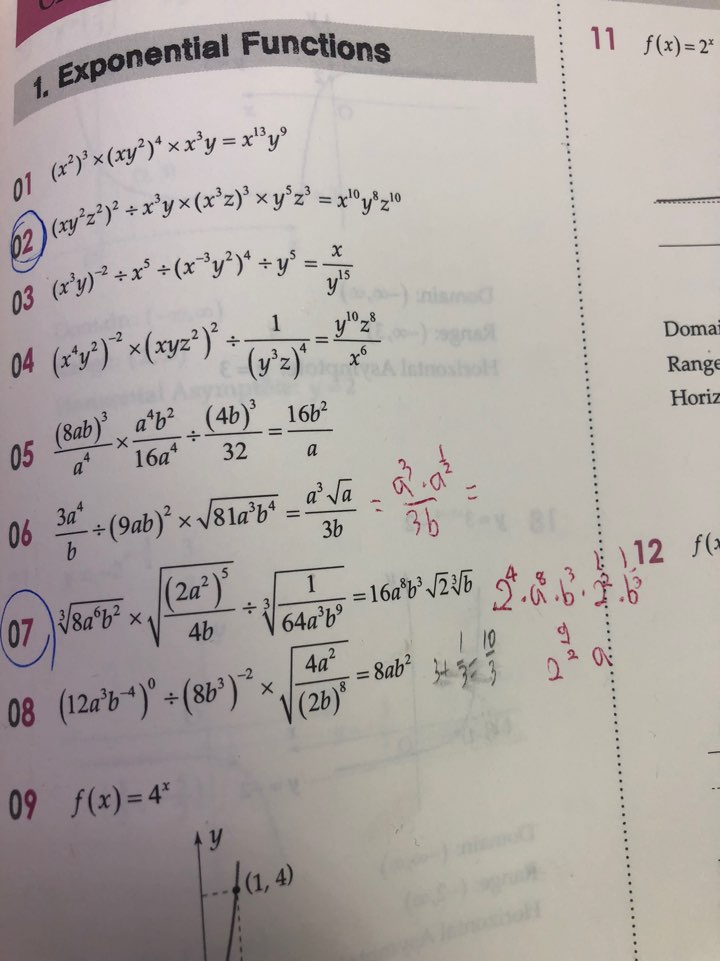 1. Exponential Functions
01 (x²)³ × (xy²)⁴ × x³y = x¹³y⁹
02 (xy²z²)² ÷ x³y × (x³z)³ × y⁵z³ = x¹⁰y⁸z¹⁰
03 (x³y)⁻² ÷ x⁵ ÷ (x⁻³y²)⁴ ÷ y⁵ = x/y¹⁵
04 (x⁴y²)⁻² × (xyz²)² ÷ 1/(y³z)⁴ = y¹⁰z⁸/x⁶
05 (8ab)³/a⁴ × a⁴b²/16a⁴ ÷ (4b)³/32 = 16b²/a
06 3a⁴/b ÷ (9ab)² × √(81a³b⁴) = a³√a/3b = a³·a^(1/2)/3b =
07 ∛(8a⁶b²) × √((2a²)⁵/4b) ÷ ∛(1/64a³b⁹) = 16a⁸b³√2∛b 2⁴·a⁸·b³·2^(1/2)·b^(1/3)
3+1/3=10/3 2^(9/2) a
08 (12a³b⁻⁴)⁰ ÷ (8b³)⁻² × √(4a²/(2b)⁸) = 8ab²
09 f(x) = 4ˣ
y
(1, 4)
11 f(x) = 2ˣ
Domai
Range
Horiz
12 f(x